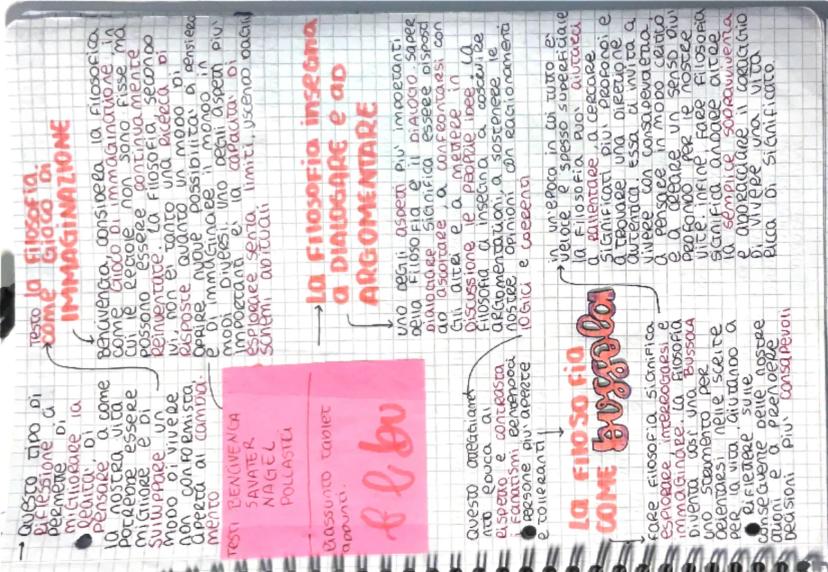 → questo tipo di
riflessione ci
permette di
migliorare la
realtà, di
pensare a come
la nostra vita
potrebbe essere
migliore e di
sviluppare un
modo di vivere
non conformista,
aperta al cambia
mento
TESTI BENCIVENGA
SAVATER
NAGEL
POLLASTRI
Riassunto tablet
appunti.
questo atteggiame
nto educa al
rispetto e contrasta
i fanatismi rendendoci
persone più aperte
e tolleranti
La FILOSOFIA
COME bussola
fare filosofia significa
esplorare, interrogarsi e
immaginare. La filosofia
diventa così una bussola
uno strumento per
orientarsi nelle scelte
per la vita, aiutando a
riflettere sulle
conseguenze delle nostre
azioni e a prendere
decisioni più consapevoli
TESTO La Filosofia
COME GIOCO DI
IMMAGINAZIONE
Bencivenga, considera la filosofia
come gioco di immaginazione in
cui le regole non sono fisse ma
possono essere continuamente
reinventate. La filosofia, secondo
lui, non è tanto una ricerca di
risposte quanto un modo di
aprire nuove possibilità di pensiero
e di immaginare il mondo in
modi diversi. Uno degli aspetti più
importanti è la capacità di
esplorare senza limiti, uscendo dagli
schemi abituali
→ La FILOSOFIA insegna
a DIALOGARE e ad
ARGOMENTARE
uno degli aspetti più importanti
della filosofia è il DIALOGO. Saper
dialogare significa essere disposti
ad ascoltare a confrontarsi con
gli altri e a mettere in
discussione le proprie idee. La
filosofia ci insegna a costruire
argomentazioni, a sostenere le
nostre opinioni con ragionamenti
logici e coerenti
in un'epoca in cui tutto è
veloce e spesso superficiale
la filosofia può aiutarci
a rallentare, a cercare
significati più profondi e
a trovare una direzione
autentica. Essa ci invita a
vivere con consapevolezza,
a pensare in modo creativo
e a creare un senso più
profondo per le nostre
vite. Infine, fare filosofia
significa andare oltre
la semplice sopravvivenza
e abbracciare il coraggio
di vivere una vita
ricca di significato.